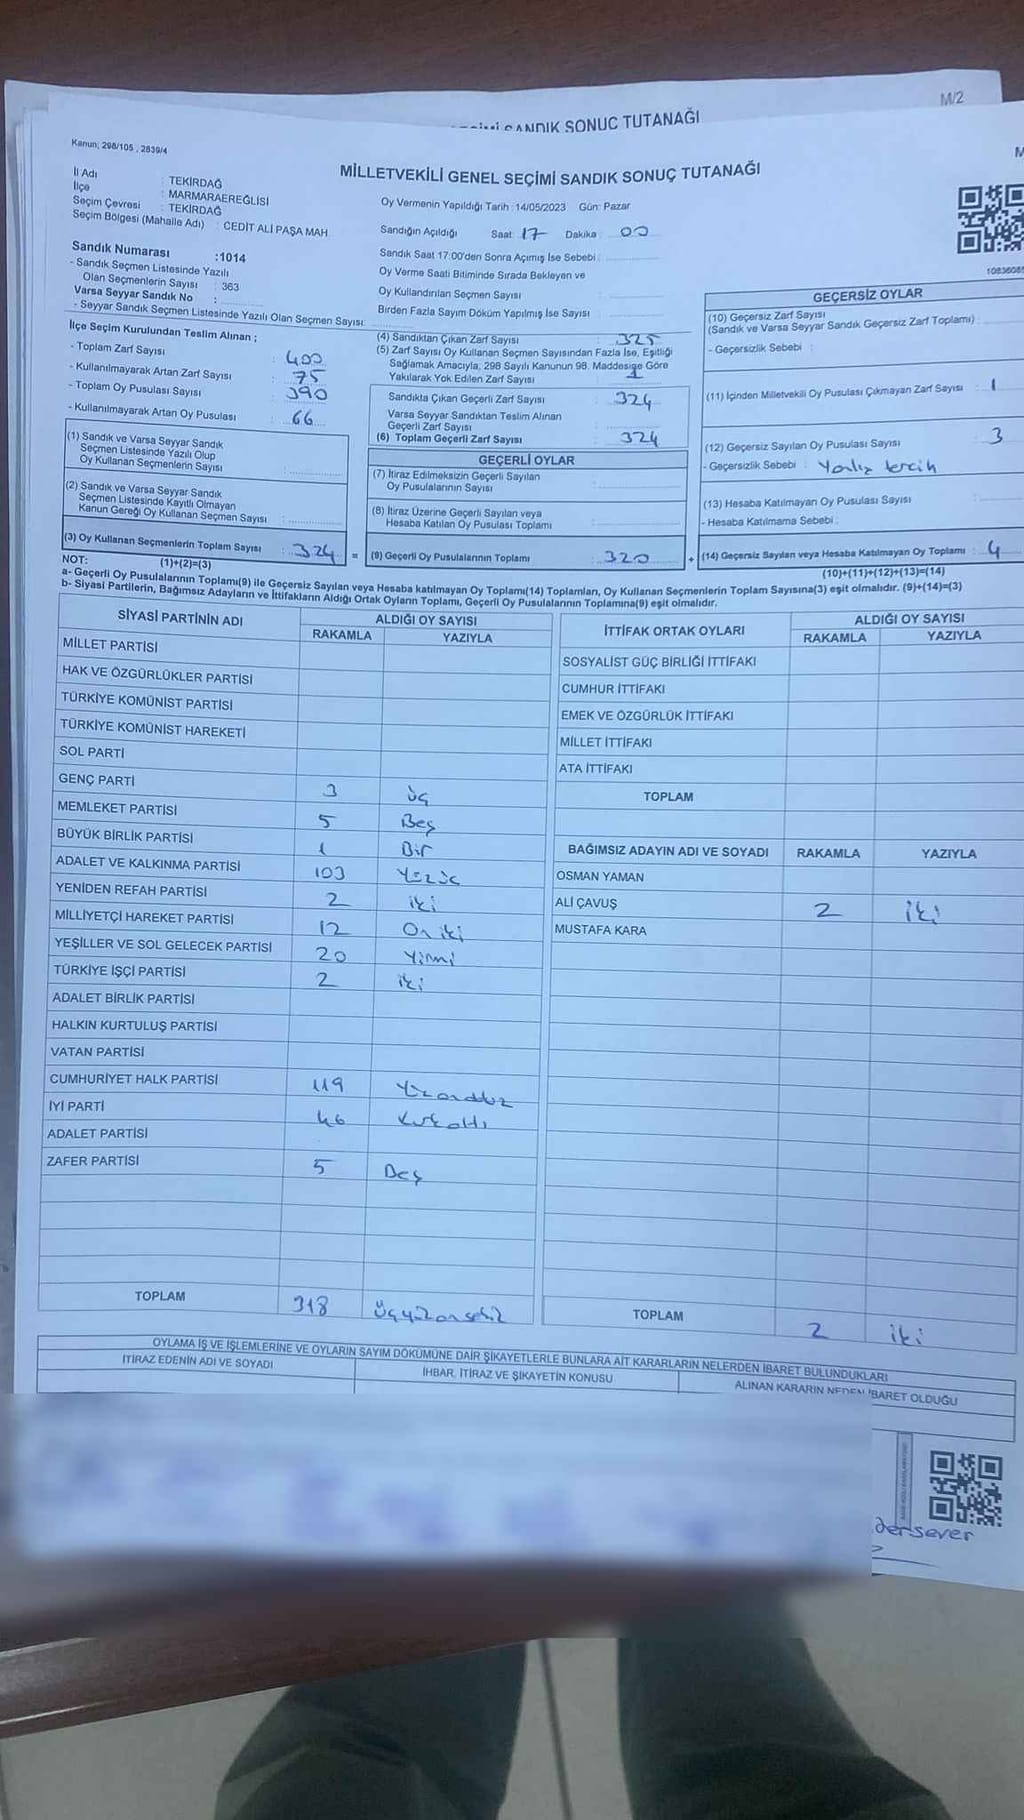 M/2
SANDIK SONUÇ TUTANAĞI
Kanun; 298/105 , 2839/4
MİLLETVEKİLİ GENEL SEÇİMİ SANDIK SONUÇ TUTANAĞI
İl Adı : TEKİRDAĞ
İlçe : MARMARAEREĞLİSİ
Seçim Çevresi : TEKİRDAĞ
Seçim Bölgesi (Mahalle Adı) : CEDİT ALİ PAŞA MAH.
Oy Vermenin Yapıldığı Tarih : 14/05/2023 Gün: Pazar
Sandığın Açıldığı Saat: 17 Dakika : 00
Sandık Saat 17:00'den Sonra Açımış İse Sebebi :
Oy Verme Saati Bitiminde Sırada Bekleyen ve
Oy Kullandırılan Seçmen Sayısı :
Birden Fazla Sayım Döküm Yapılmış İse Sayısı :
Sandık Numarası :1014
- Sandık Seçmen Listesinde Yazılı
Olan Seçmenlerin Sayısı : 363
Varsa Seyyar Sandık No :
- Seyyar Sandık Seçmen Listesinde Yazılı Olan Seçmen Sayısı:
İlçe Seçim Kurulundan Teslim Alınan ;
- Toplam Zarf Sayısı : 400
- Kullanılmayarak Artan Zarf Sayısı : 75
- Toplam Oy Pusulası Sayısı : 390
- Kullanılmayarak Artan Oy Pusulası : 66
(1) Sandık ve Varsa Seyyar Sandık
Seçmen Listesinde Yazılı Olup
Oy Kullanan Seçmenlerin Sayısı :
(2) Sandık ve Varsa Seyyar Sandık
Seçmen Listesinde Kayıtlı Olmayan
Kanun Gereği Oy Kullanan Seçmen Sayısı :
(3) Oy Kullanan Seçmenlerin Toplam Sayısı : 324
(1)+(2)=(3)
(4) Sandıktan Çıkan Zarf Sayısı : 325
(5) Zarf Sayısı Oy Kullanan Seçmen Sayısından Fazla İse, Eşitliği
Sağlamak Amacıyla, 298 Sayılı Kanunun 98. Maddesine Göre
Yakılarak Yok Edilen Zarf Sayısı : 1
Sandıkta Çıkan Geçerli Zarf Sayısı : 324
Varsa Seyyar Sandıktan Teslim Alınan
Geçerli Zarf Sayısı :
(6) Toplam Geçerli Zarf Sayısı : 324
GEÇERLİ OYLAR
(7) İtiraz Edilmeksizin Geçerli Sayılan
Oy Pusulalarının Sayısı :
(8) İtiraz Üzerine Geçerli Sayılan veya
Hesaba Katılan Oy Pusulası Toplamı :
= (9) Geçerli Oy Pusulalarının Toplamı : 320 +
GEÇERSİZ OYLAR
(10) Geçersiz Zarf Sayısı
(Sandık ve Varsa Seyyar Sandık Geçersiz Zarf Toplamı) :
- Geçersizlik Sebebi :
(11) İçinden Milletvekili Oy Pusulası Çıkmayan Zarf Sayısı : 1
(12) Geçersiz Sayılan Oy Pusulası Sayısı : 3
- Geçersizlik Sebebi : Yanlız tercih
(13) Hesaba Katılmayan Oy Pusulası Sayısı :
- Hesaba Katılmama Sebebi :
(14) Geçersiz Sayılan veya Hesaba Katılmayan Oy Toplamı : 4
(10)+(11)+(12)+(13)=(14)
NOT:
a- Geçerli Oy Pusulalarının Toplamı(9) ile Geçersiz Sayılan veya Hesaba katılmayan Oy Toplamı(14) Toplamları, Oy Kullanan Seçmenlerin Toplam Sayısına(3) eşit olmalıdır. (9)+(14)=(3)
b- Siyasi Partilerin, Bağımsız Adayların ve İttifakların Aldığı Ortak Oyların Toplamı, Geçerli Oy Pusulalarının Toplamına(9) eşit olmalıdır.
SİYASİ PARTİNİN ADI ALDIĞI OY SAYISI
RAKAMLA YAZIYLA
MİLLET PARTİSİ
HAK VE ÖZGÜRLÜKLER PARTİSİ
TÜRKİYE KOMÜNİST PARTİSİ
TÜRKİYE KOMÜNİST HAREKETİ
SOL PARTİ
GENÇ PARTİ 3 üç
MEMLEKET PARTİSİ 5 Beş
BÜYÜK BİRLİK PARTİSİ 1 Bir
ADALET VE KALKINMA PARTİSİ 103 Yüzüç
YENİDEN REFAH PARTİSİ 2 iki
MİLLİYETÇİ HAREKET PARTİSİ 12 On iki
YEŞİLLER VE SOL GELECEK PARTİSİ 20 Yirmi
TÜRKİYE İŞÇİ PARTİSİ 2 iki
ADALET BİRLİK PARTİSİ
HALKIN KURTULUŞ PARTİSİ
VATAN PARTİSİ
CUMHURİYET HALK PARTİSİ 119 Yüzondokuz
İYİ PARTİ 46 Kırkaltı
ADALET PARTİSİ
ZAFER PARTİSİ 5 Beş
TOPLAM 318 üçyüzonsekiz
İTTİFAK ORTAK OYLARI ALDIĞI OY SAYISI
RAKAMLA YAZIYLA
SOSYALİST GÜÇ BİRLİĞİ İTTİFAKI
CUMHUR İTTİFAKI
EMEK VE ÖZGÜRLÜK İTTİFAKI
MİLLET İTTİFAKI
ATA İTTİFAKI
TOPLAM
BAĞIMSIZ ADAYIN ADI VE SOYADI RAKAMLA YAZIYLA
OSMAN YAMAN
ALİ ÇAVUŞ 2 iki
MUSTAFA KARA
TOPLAM 2 iki
OYLAMA İŞ VE İŞLEMLERİNE VE OYLARIN SAYIM DÖKÜMÜNE DAİR ŞİKAYETLERLE BUNLARA AİT KARARLARIN NELERDEN İBARET BULUNDUKLARI
İTİRAZ EDENİN ADI VE SOYADI İHBAR, İTİRAZ VE ŞİKAYETİN KONUSU ALINAN KARARIN NEDEN İBARET OLDUĞU